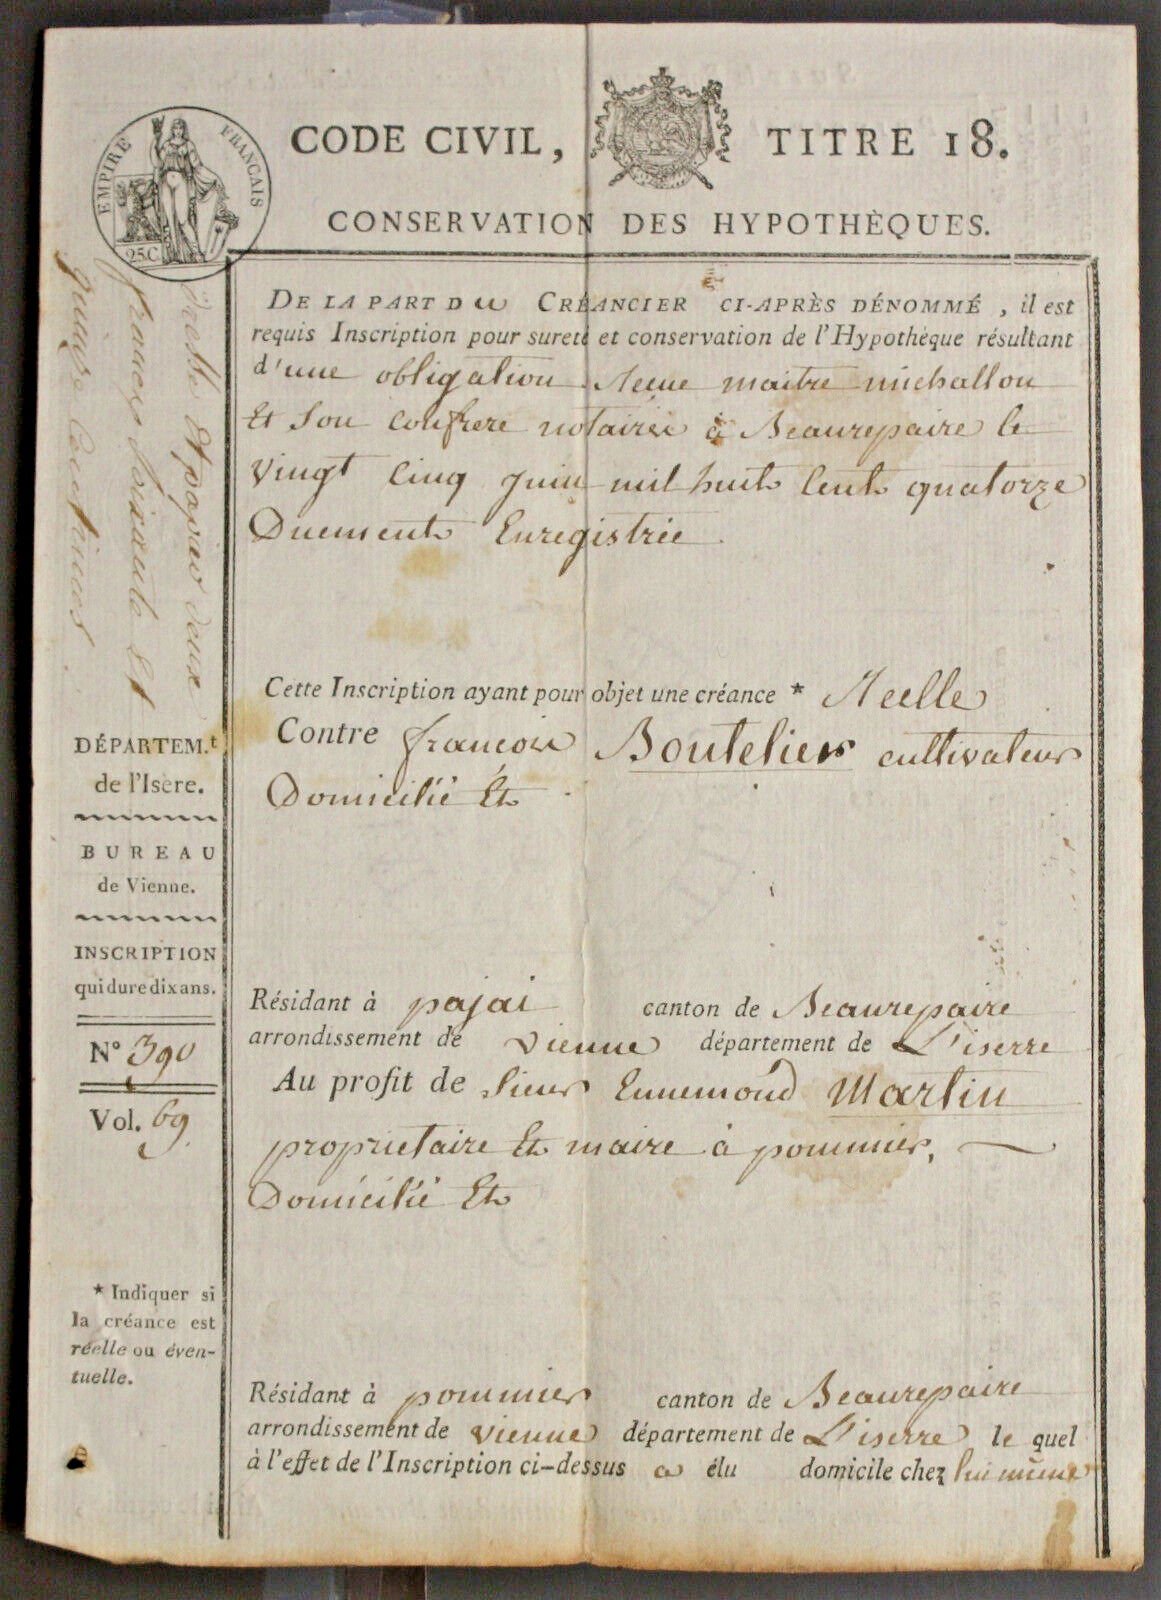 EMPIRE FRANÇAIS
25C.
CODE CIVIL, TITRE 18.
CONSERVATION DES HYPOTHÈQUES.
DE LA PART DU CRÉANCIER CI-APRÈS DÉNOMMÉ, il est
requis Inscription pour sureté et conservation de l'Hypothèque résultant
d'une obligation Reçue maitre michallon
Et Son Confrere notaires à Beaurepaire le
vingt Cinq juin mil huit Cent quatorze
Duement Enregistrée
Cette Inscription ayant pour objet une créance * Réelle
Contre françois Boutelier cultivateur
Domicilié Et
Résidant à pajai canton de Beaurepaire
arrondissement de vienne département de L'iserre
Au profit de Sieur Ennemond Martin
proprietaire Et maire à pommier,
Domicilié Et
Résidant à pommier canton de Beaurepaire
arrondissement de vienne département de L'iserre le quel
à l'effet de l'Inscription ci-dessus a élu domicile chez lui même
deux
francs soixante Et
quinze Centimes
DÉPARTEM.t
de l'Isère.
BUREAU
de Vienne.
INSCRIPTION
qui dure dix ans.
N° 390
Vol. 69
* Indiquer si
la créance est
réelle ou éven-
tuelle.